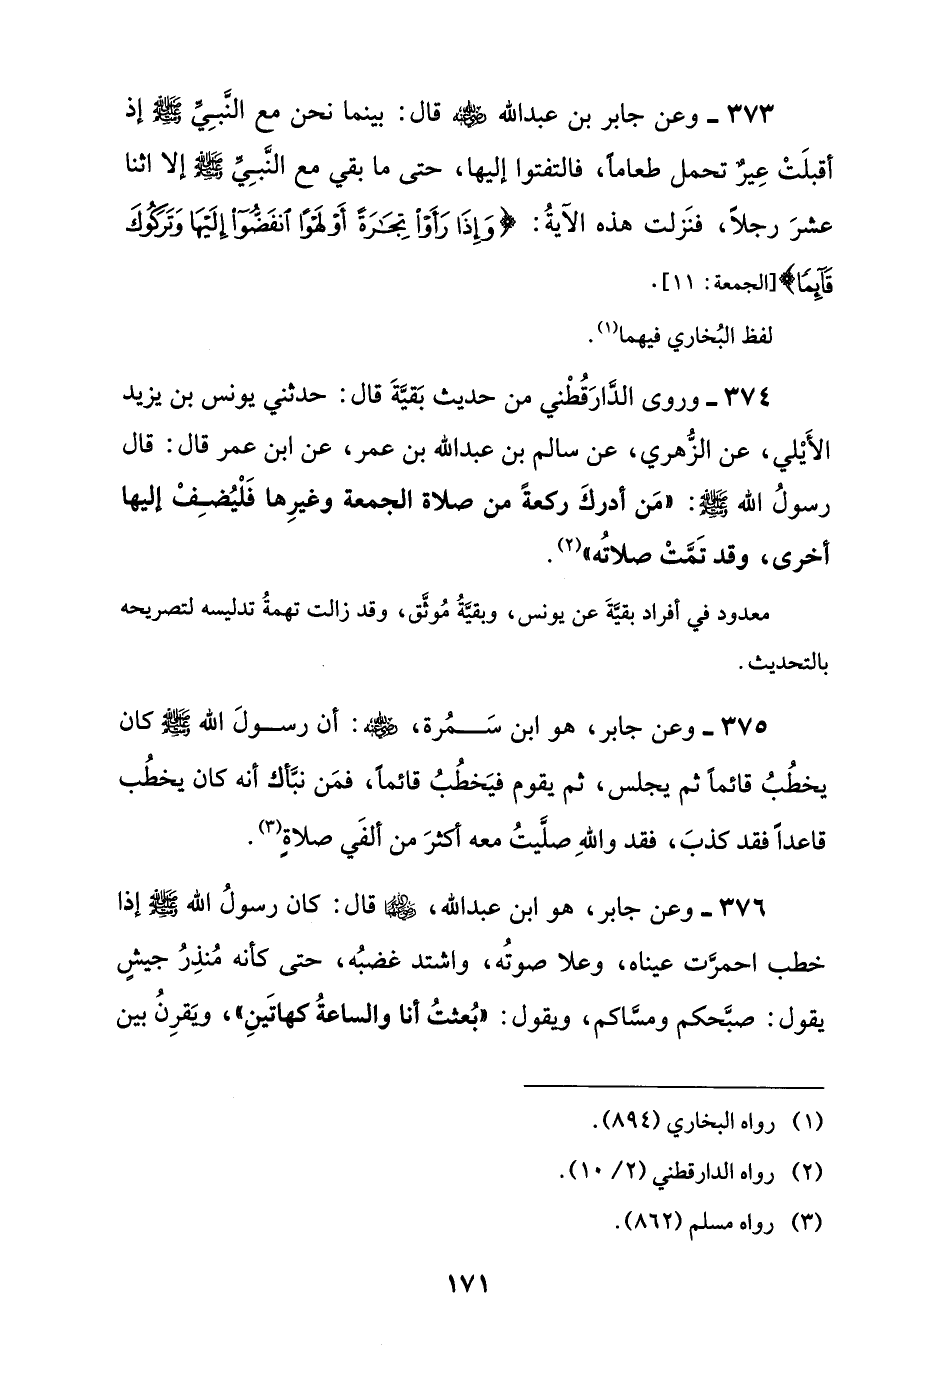 ٣٧٣ ـ وعن جابر بن عبدالله ﵁ قال: بينما نحن مع النَّبيِّ ﷺ إذ
أقبلَتْ عِيرٌ تحمل طعاماً، فالتفتوا إليها، حتى ما بقي مع النَّبيِّ ﷺ إلا اثنا
عشرَ رجلاً، فنَزلت هذه الآيةُ: ﴿وَإِذَا رَأَوْا۟ تِجَـٰرَةً أَوْ لَهْوًا ٱنفَضُّوٓا۟ إِلَيْهَا وَتَرَكُوكَ
قَآئِمًا﴾[الجمعة: ١١].
لفظ البُخاري فيهما(١).
٣٧٤ ـ وروى الدَّارَقُطْني من حديث بَقيَّةَ قال: حدثني يونس بن يزيد
الأَيْلي، عن الزُّهري، عن سالم بن عبدالله بن عمر، عن ابن عمر قال: قال
رسولُ الله ﷺ: «مَن أدركَ ركعةً من صلاة الجمعة وغيرِها فَلْيُضفْ إليها
أخرى، وقد تَمَّتْ صلاتُه»(٢).
معدود في أفراد بقيَّةَ عن يونس، وبقيَّةُ مُوثَّق، وقد زالت تهمةُ تدليسه لتصريحه
بالتحديث.
٣٧٥ ـ وعن جابر، هو ابن سَـمُرة، ﵁: أن رسـولَ الله ﷺ كان
يخطُبُ قائماً ثم يجلس، ثم يقوم فيَخطُبُ قائماً، فمَن نبَّأك أنه كان يخطُب
قاعداً فقد كذبَ، فقد واللهِ صلَّيتُ معه أكثرَ من ألفَي صلاةٍ(٣).
٣٧٦ ـ وعن جابر، هو ابن عبدالله، ﵄ قال: كان رسولُ الله ﷺ إذا
خطب احمرَّت عيناه، وعلا صوتُه، واشتد غضبُه، حتى كأنه مُنذِرُ جيشٍ
يقول: صبَّحكم ومسَّاكم، ويقول: «بُعثتُ أنا والساعةُ كهاتَينِ»، ويَقرِنُ بين
(١) رواه البخاري (٨٩٤).
(٢) رواه الدارقطني (٢/ ١٠).
(٣) رواه مسلم (٨٦٢).
١٧١